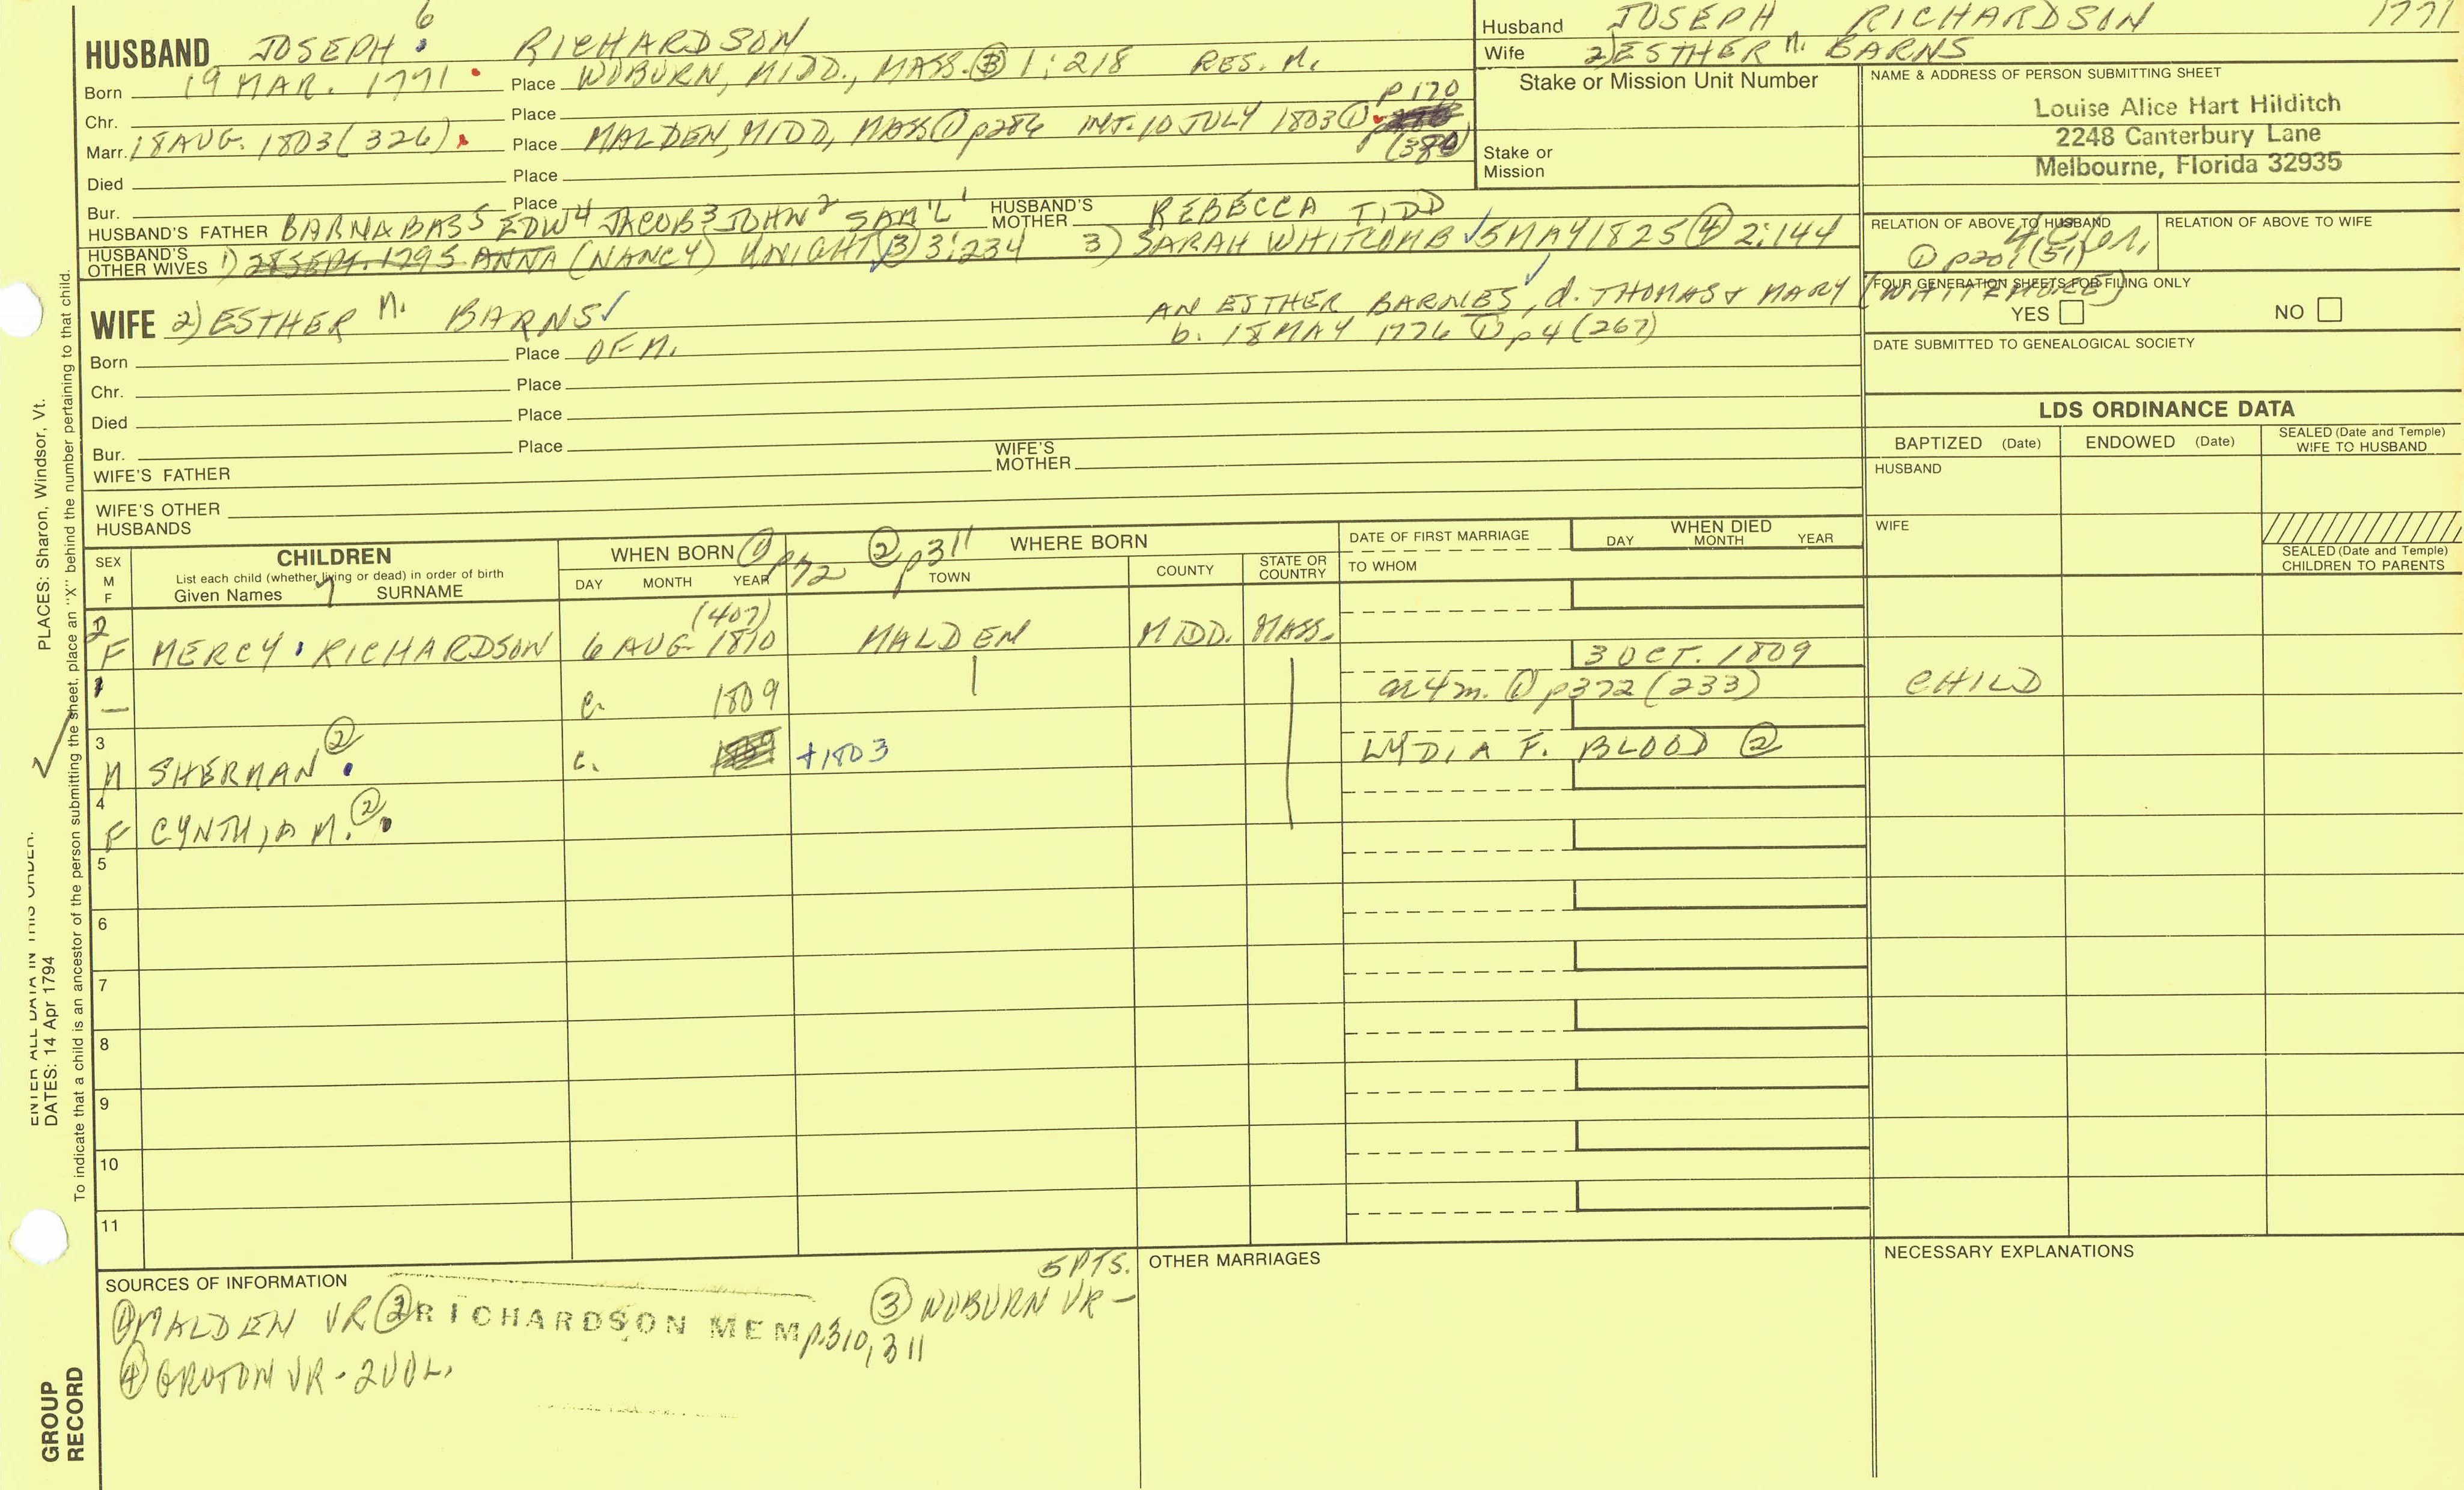 6
HUSBAND JOSEPH RICHARDSON
Born 19 MAR. 1771 Place WOBURN, MIDD., MASS. ③ 1:218 RES. M.
Chr. Place P170
Marr. 18 AUG. 1803 (326) Place MALDEN, MIDD, MASS ① p286 INT. 10 JULY 1803 ①
Died Place
Bur. Place
HUSBAND'S FATHER BARNABAS 5 EDW 4 JACOB 3 JOHN 2 SAM'L 1 HUSBAND'S MOTHER REBECCA TIDD
HUSBAND'S OTHER WIVES 1) 28 SEPT. 1795 ANNA (NANCY) KNIGHT ③ 3:234 3) SARAH WHITCOMB 5 MAY 1825 ④ 2:144
WIFE 2) ESTHER M. BARNS AN ESTHER BARNES, d. THOMAS & MARY
b. 18 MAY 1776 ① p4 (267)
Born Place OF M.
Chr. Place
Died Place
Bur. Place
WIFE'S FATHER WIFE'S MOTHER
WIFE'S OTHER HUSBANDS
Husband JOSEPH RICHARDSON 1771
Wife 2) ESTHER M. BARNS
Stake or Mission Unit Number
Stake or Mission
NAME & ADDRESS OF PERSON SUBMITTING SHEET
Louise Alice Hart Hilditch
2248 Canterbury Lane
Melbourne, Florida 32935
RELATION OF ABOVE TO HUSBAND RELATION OF ABOVE TO WIFE
FOUR GENERATION SHEETS FOR FILING ONLY
YES NO
DATE SUBMITTED TO GENEALOGICAL SOCIETY
LDS ORDINANCE DATA
BAPTIZED (Date) ENDOWED (Date) SEALED (Date and Temple) WIFE TO HUSBAND
HUSBAND
WIFE
SEALED (Date and Temple) CHILDREN TO PARENTS
SEX M F
CHILDREN
List each child (whether living or dead) in order of birth
Given Names 7 SURNAME
WHEN BORN ① p72 ② p311 WHERE BORN
DAY MONTH YEAR TOWN COUNTY STATE OR COUNTRY
DATE OF FIRST MARRIAGE
TO WHOM
WHEN DIED
DAY MONTH YEAR
(407)
2 F MERCY RICHARDSON 6 AUG 1810 MALDEN MIDD. MASS.
3 OCT. 1809
1 — c. 1809 ae 4m. ① p372 (233) CHILD
3 M SHERMAN ② c. +1803 LYDIA F. BLOOD ②
4 F CYNTHIA M. ②
5
6
7
8
9
10
11
SOURCES OF INFORMATION
5 PTS.
① MALDEN VR ② RICHARDSON MEM p.310, 311 ③ WOBURN VR -
④ GROTON VR - 2 VOL.
OTHER MARRIAGES
NECESSARY EXPLANATIONS
ENTER ALL DATA IN THIS ORDER:
DATES: 14 Apr 1794
PLACES: Sharon, Windsor, Vt.
To indicate that a child is an ancestor of the person submitting the sheet, place an "X" behind the number pertaining to that child.
GROUP
RECORD